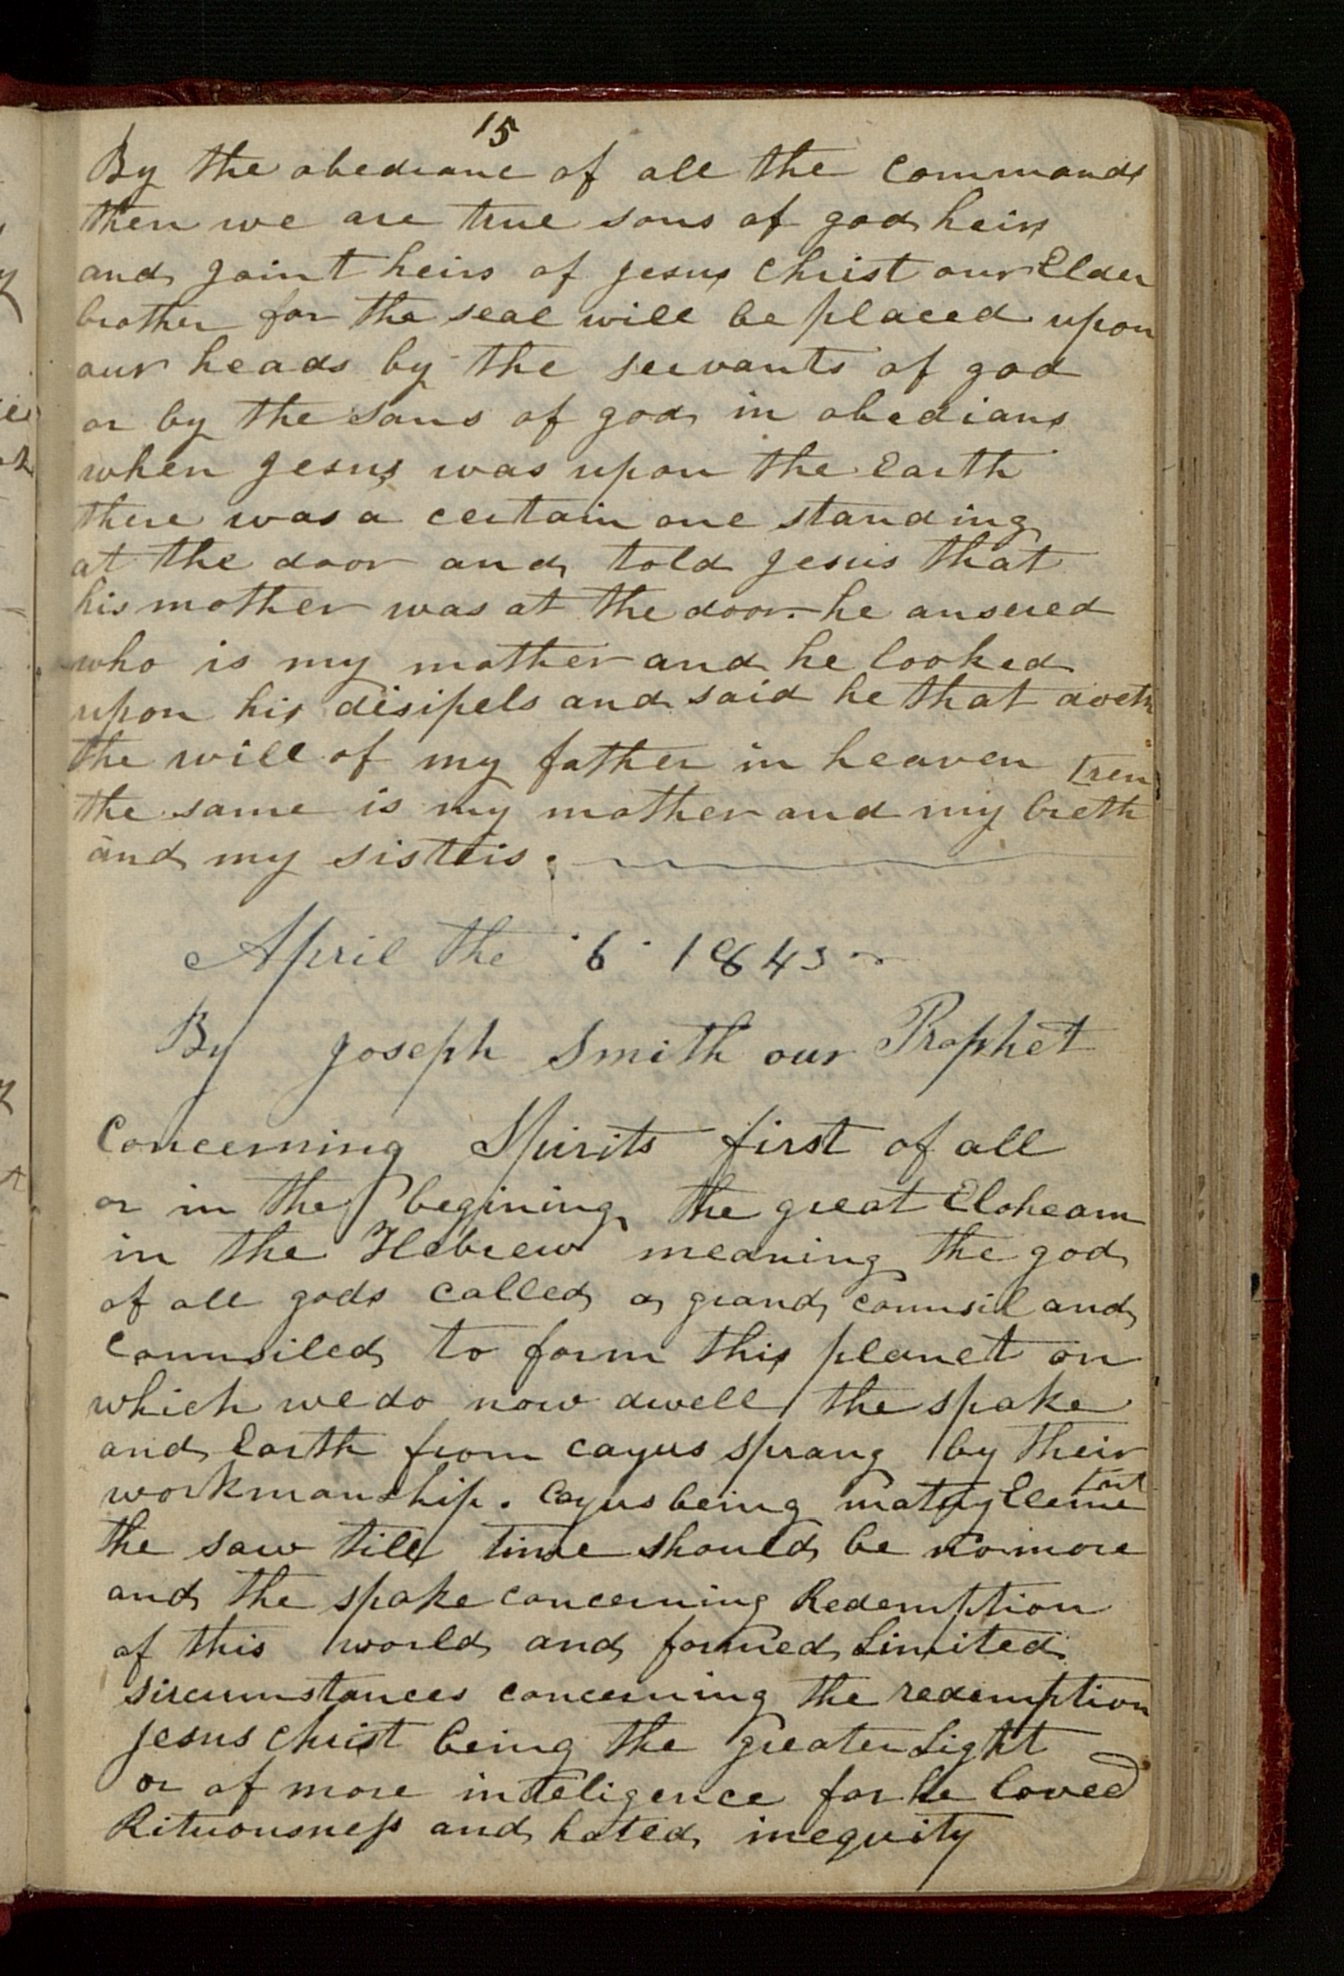 15
By the abedianc of all the commands
then we are true sons of god heirs
and joint heirs of jesus christ our Elder
brother for the seal will be placed upon
our heads by the servants of god
or by the sons of god in obedians
when jesus was upon the Earth
there was a certain one standing
at the door and told jesus that
his mother was at the door he ansered
who is my mother and he looked
upon his disipels and said he that doeth
the will of my father in heaven
the same is my mother and my breth[ren
and my sisters.
April the 6 1843
By Joseph Smith our Prophet
Concerning Spirits first of all
or in the begining the great Eloheam
in the Hebrew meaning the god
of all gods called a grand counsil and
counsiled to form this planet on
which we do now dwell the spoke
and Earth from cayus sprang by their
workmanship. Cayus being Element
the saw till time should be no more
and the spoke concerning Redemption
of this world and formed Limited
sircumstances concerning the redemption
jesus christ being the greater Light
or of more inteligence for he loved
Rituousness and hated inequity